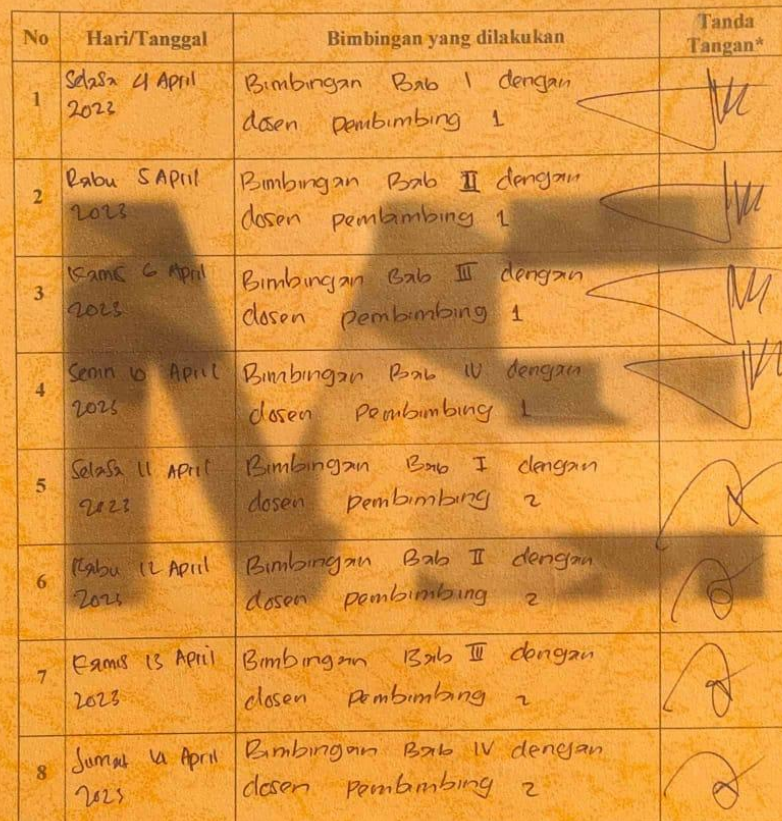 No Hari/Tanggal Bimbingan yang dilakukan Tanda
Tangan*
1 Selasa 4 April Bimbingan Bab I dengan
2023 dosen pembimbing 1
2 Rabu 5 April Bimbingan Bab II dengan
2023 dosen pembimbing 1
3 Kamis 6 April Bimbingan Bab III dengan
2023 dosen pembimbing 1
4 Senin 10 April Bimbingan Bab IV dengan
2023 dosen pembimbing 1
5 Selasa 11 April Bimbingan Bab I dengan
2023 dosen pembimbing 2
6 Rabu 12 April Bimbingan Bab II dengan
2023 dosen pembimbing 2
7 Kamis 13 April Bimbingan Bab III dengan
2023 dosen pembimbing 2
8 Jumat 14 April Bimbingan Bab IV dengan
2023 dosen pembimbing 2